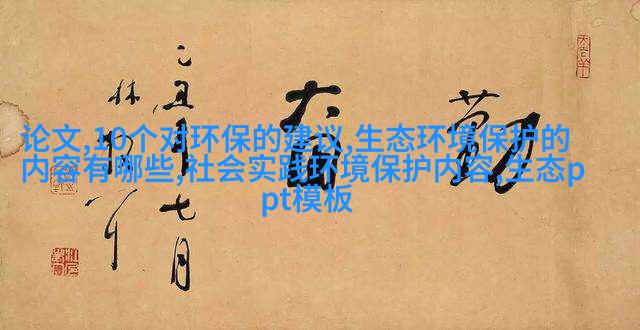 论文,10个对环保的建议,生态环境保护的
内容有哪些,社会实践环境保护内容,生态p
pt模板
勤奋
乙丑年七月
林散耳